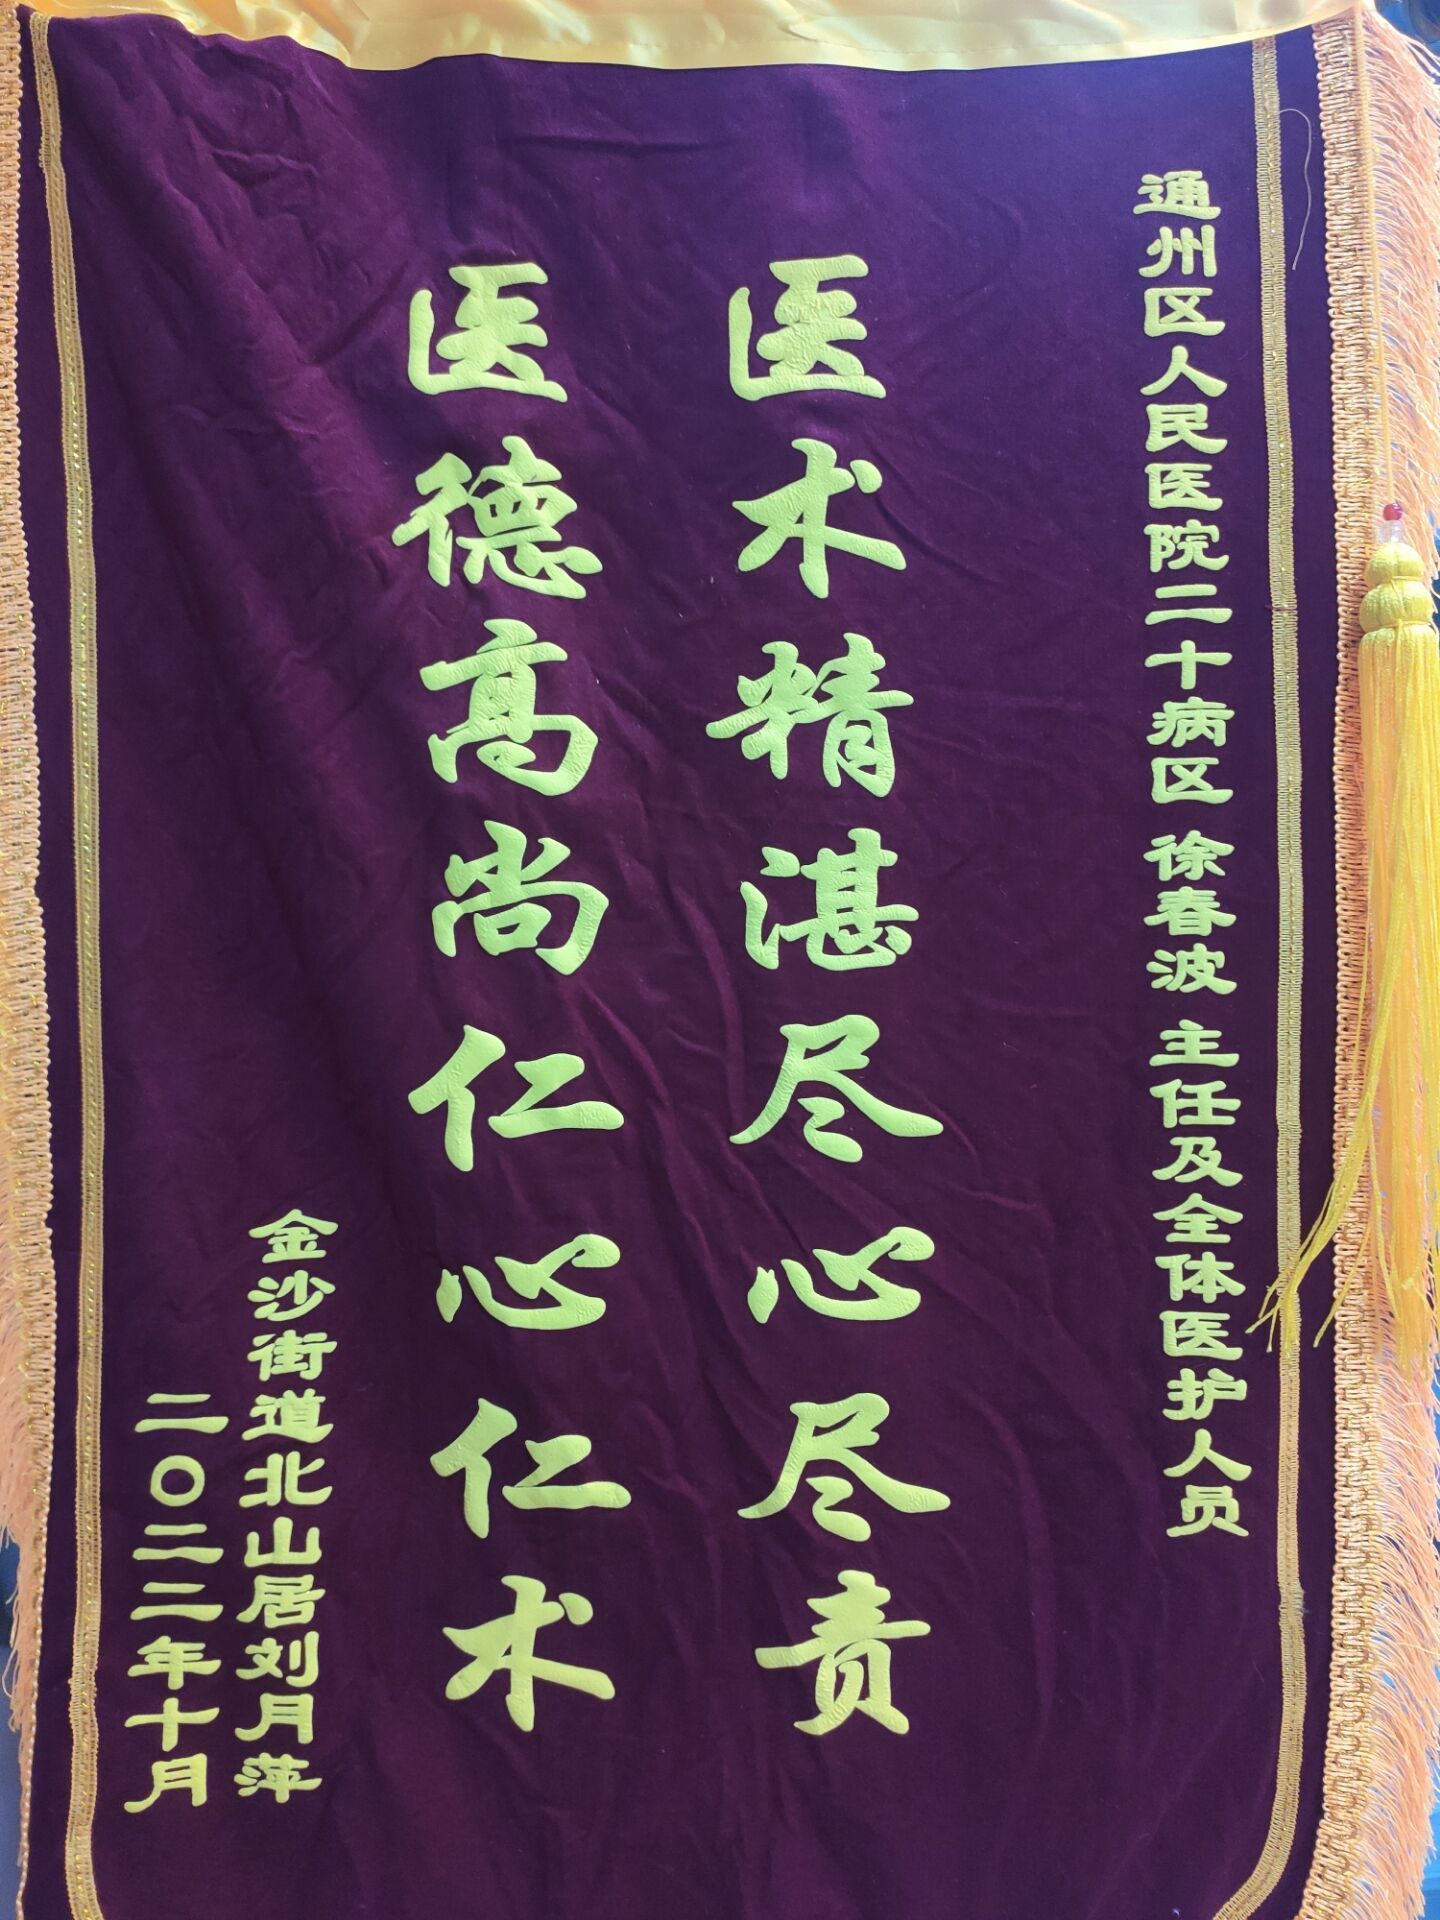 通州区人民医院二十病区 徐春波 主任及全体医护人员
医术精湛尽心尽责
医德高尚仁心仁术
金沙街道北山居刘月萍
二〇二二年十月